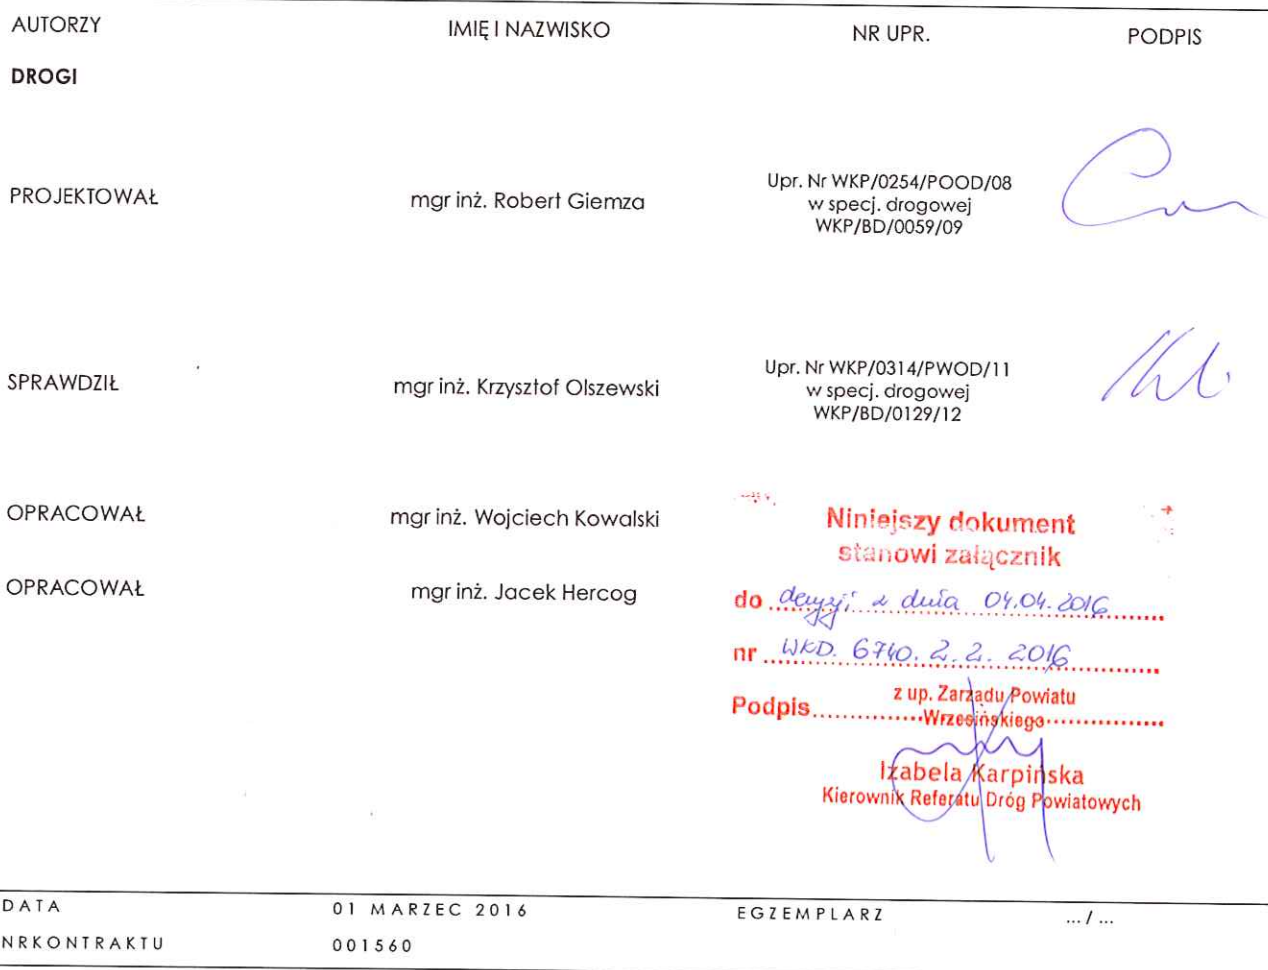 AUTORZY IMIĘ I NAZWISKO NR UPR. PODPIS
DROGI
PROJEKTOWAŁ mgr inż. Robert Giemza Upr. Nr WKP/0254/POOD/08
w specj. drogowej
WKP/BD/0059/09
SPRAWDZIŁ mgr inż. Krzysztof Olszewski Upr. Nr WKP/0314/PWOD/11
w specj. drogowej
WKP/BD/0129/12
OPRACOWAŁ mgr inż. Wojciech Kowalski
OPRACOWAŁ mgr inż. Jacek Hercog
Niniejszy dokument
stanowi załącznik
do decyzji z dnia 04.04.2016
nr WKD. 6740. 2. 2. 2016
z up. Zarządu Powiatu
Podpis Wrzesińskiego
Izabela Karpińska
Kierownik Referatu Dróg Powiatowych
DATA 01 MARZEC 2016 EGZEMPLARZ ... / ...
NRKONTRAKTU 001560